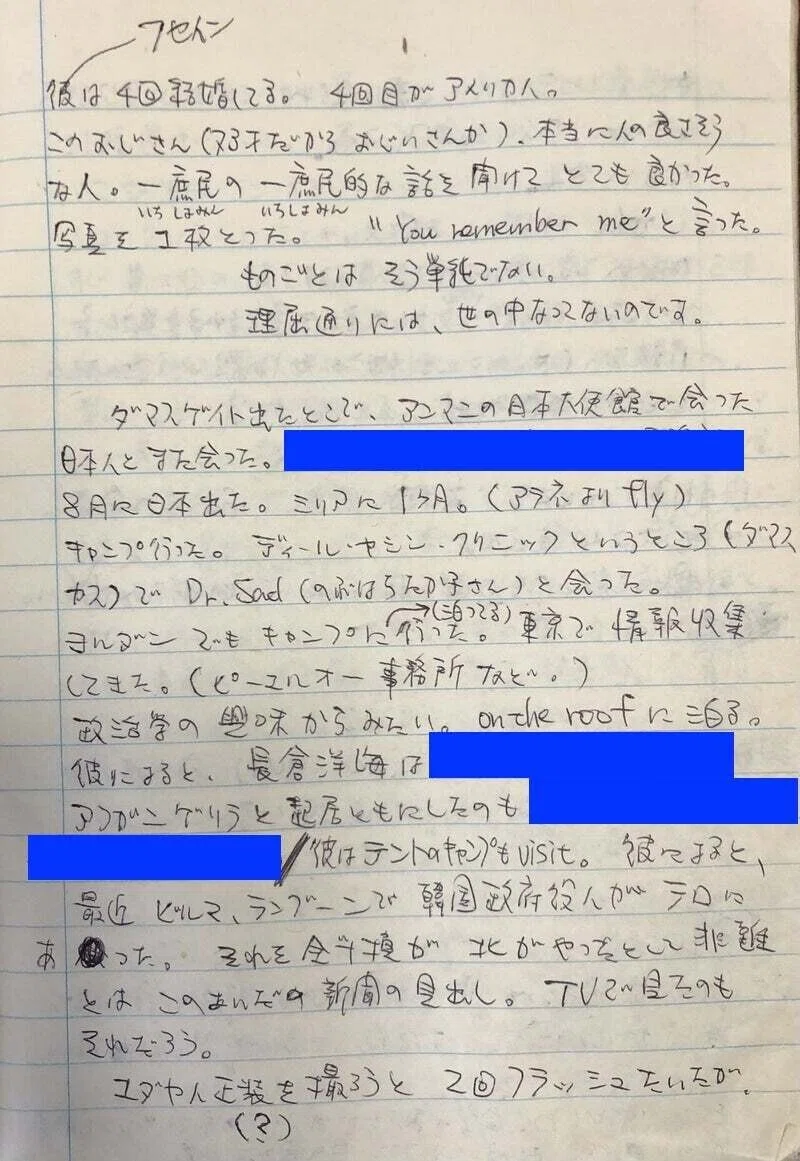 フセイン
1
彼は4回結婚してる。 4回目がアメリカ人。
このおじさん(73才だから おじいさんか)、本当に人の良さそう
な人。一庶民の 一庶民的な 話を 聞けて とても 良かった。
いちしょみん いちしょみん
写真を 1枚とった。 “You remember me”と 言った。
ものごとは そう単純でない。
理屈通りには、世の中なってないのです。
ダマスゲイト出たとこで、アンマンの日本大使館で会った
日本人とまた会った。
8月に日本出た。シリアに1ヶ月。(アテネより fly)
キャンプ行った。ディール・ヤシン・クリニックというところ(ダマス
カス)で Dr. Sad (のぶはらたか子さん)と会った。
(泊ってる)
ヨルダン でも キャンプに行った。東京で 情報収集
してきた。(ピーエルオー事務所 など。)
政治学の 興味からみたい。 on the roof に 泊る。
彼によると、長倉洋海は
アフガンゲリラと 起居ともにしたのも
彼はテントのキャンプもvisit。 彼によると、
最近 ビルマ、ラングーンで 韓国政府役人が テロに
あった。 それを全斗煥が 北がやったとして 非難
とは このあいだの 新聞の見出し。 TVで見たのも
それだろう。
ユダヤ人正装を撮ろうと 2回フラッシュたいたが、
(?)